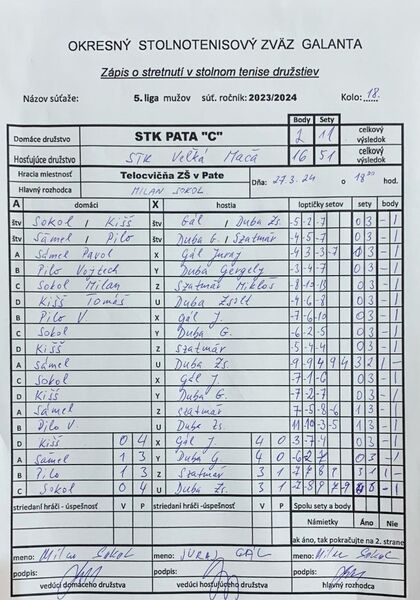 OKRESNÝ STOLNOTENISOVÝ ZVÄZ GALANTA
Zápis o stretnutí v stolnom tenise družstiev
Názov súťaže: 5. liga mužov súť. ročník: 2023/2024 Kolo: 18.
Body Sety
Domáce družstvo STK PATA "C" 2 11 celkový výsledok
Hosťujúce družstvo STK Veľká Mača 16 51 celkový výsledok
Hracia miestnosť Telocvičňa ZŠ v Pate Dňa: 27.3.24 o 18
Hlavný rozhodca MILAN SOKOL
A domáci X hostia loptičky setov sety body
štv Sokol / Kišš štv Gál / Duba Zs. -5 -2 -7 0 3 - 1
štv Sámel / Pilo štv Duba G. / Szatmár -4 -5 -7 0 3 - 1
A Sámel Pavol X Gál Juraj 0 3 - 1
B Pilo Vojtech Y Duba Gergely -3 -4 -7 0 3 - 1
C Sokol Milan Z Szatmár Miklós 0 3 - 1
D Kišš Tomáš U Duba Zsolt -4 -6 -8 0 3 - 1
B Pilo V. X Gál J. -7 -6 -10 0 3 - 1
C Sokol Y Duba G. -6 -2 -5 0 3 - 1
D Kišš Z Szatmár -5 -4 -4 0 3 - 1
A Sámel U Duba Zs. -9 9 4 9 4 3 2 1 -
C Sokol X Gál J. -7 -1 -6 0 3 - 1
D Kišš Y Duba G. -7 -2 -7 0 3 - 1
A Sámel Z Szatmár 7 -5 -8 -6 1 3 - 1
B Pilo V. U Duba Zs. 1 3 - 1
D Kišš 0 4 X Gál J. 4 0 0 3 - 1
A Sámel 1 3 Y Duba G. 4 0 0 3 - 1
B Pilo 1 3 Z Szatmár 3 1 3 1 1 -
C Sokol 0 4 U Duba Zs. 3 1 - 1
striedaní hráči - úspešnosť V P striedaní hráči - úspešnosť V P Spolu sety a body
Námietky Áno Nie
ak áno, tak pokračujte na 2. strane
meno: Milan Sokol meno: JURAJ GÁL meno: Milan Sokol
podpis: podpis: podpis:
vedúci domáceho družstva vedúci hosťujúceho družstva hlavný rozhodca